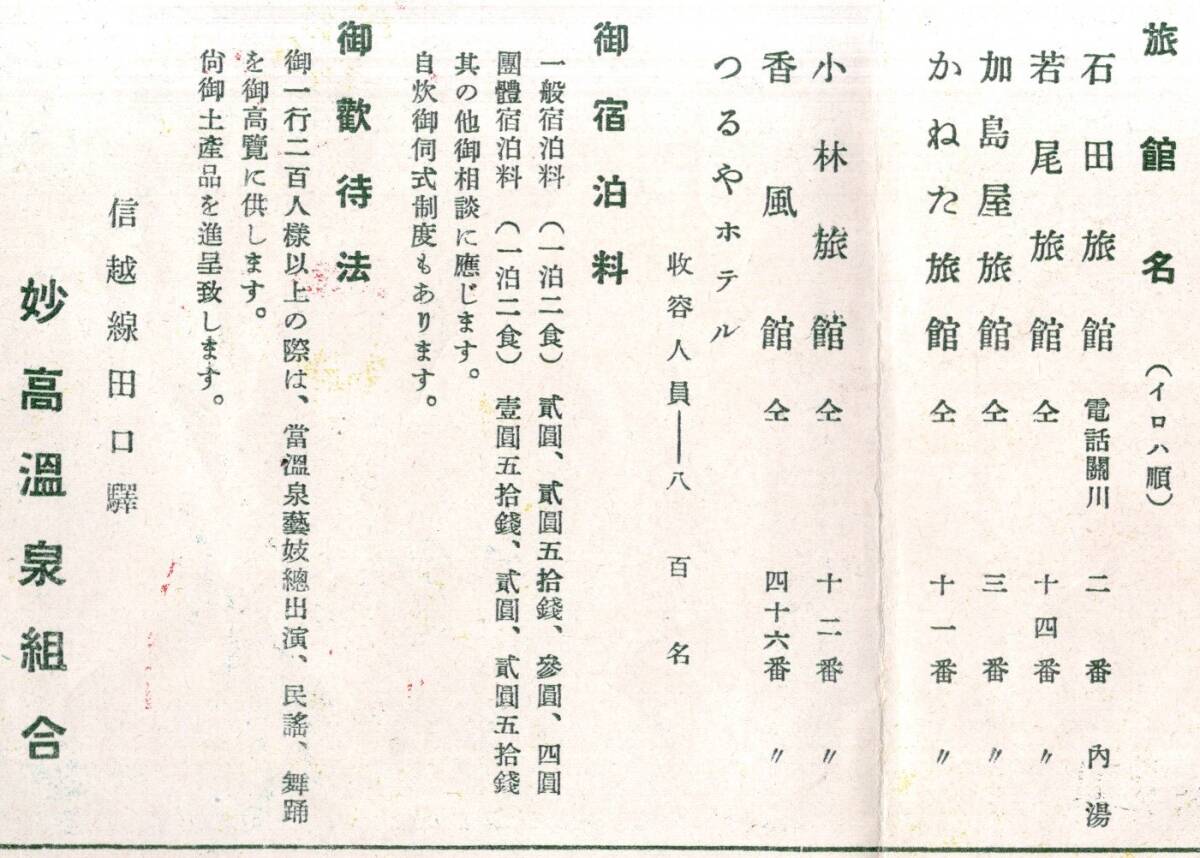 旅館名（イロハ順）
石田旅館 電話關川 二番 內湯
若尾旅館 仝 十四番 〃
加島屋旅館 仝 三番 〃
かねた旅館 仝 十一番 〃
小林旅館 仝 十二番 〃
香風館 仝 四十六番 〃
つるやホテル
收容人員——八百名
御宿泊料
一般宿泊料（一泊二食）貳圓、貳圓五拾錢、參圓、四圓
團體宿泊料（一泊二食）壹圓五拾錢、貳圓、貳圓五拾錢
其の他御相談に應じます。
自炊御伺式制度もあります。
御歡待法
御一行二百人樣以上の際は、當溫泉藝妓總出演、民謠、舞踊
を御高覽に供します。
尙御土產品を進呈致します。
信越線田口驛
妙高溫泉組合